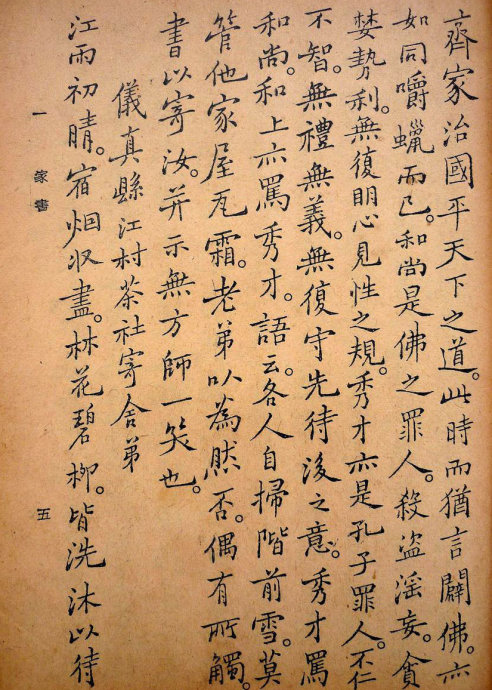 齊家治國平天下之道。此時而猶言闢佛。亦
如同嚼蠟而已。和尚是佛之罪人。殺盜淫妄。貪
婪勢利。無復明心見性之規。秀才亦是孔子罪人。不仁
不智。無禮無義。無復守先待後之意。秀才罵
和尚。和上亦罵秀才。語云。各人自掃階前雪。莫
管他家屋瓦霜。老弟以為然否。偶有所觸。
書以寄汝。并示無方師一笑也。
儀真縣江村茶社寄舍弟
江雨初晴。宿烟收盡。林花碧柳。皆洗沐以待
一 家書 五